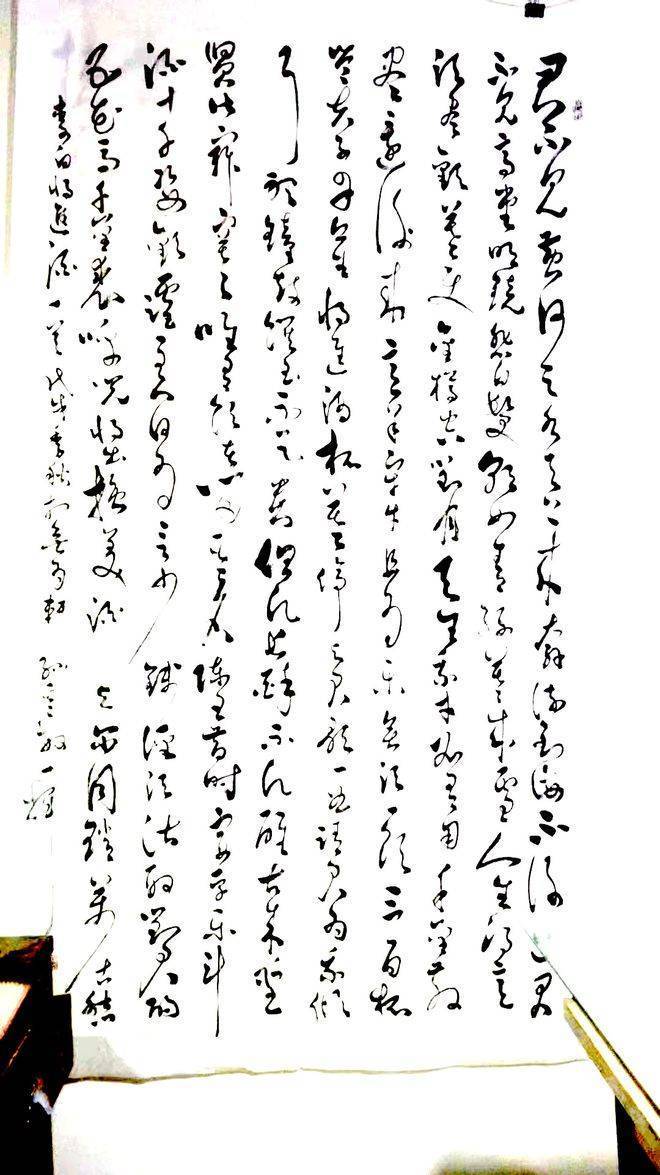 君不见黄河之水天上来奔流到海不复回君
不见高堂明镜悲白发朝如青丝暮成雪人生得意
须尽欢莫使金樽空对月天生我材必有用千金散
尽还复来烹羊宰牛且为乐会须一饮三百杯
岑夫子丹丘生将进酒杯莫停与君歌一曲请君为我倾
耳听钟鼓馔玉不足贵但愿长醉不愿醒古来圣
贤皆寂寞惟有饮者留其名陈王昔时宴平乐斗
酒十千恣欢谑主人何为言少钱径须沽取对君酌
五花马千金裘呼儿将出换美酒与尔同销万古愁
李白将进酒一首戊戌季秋